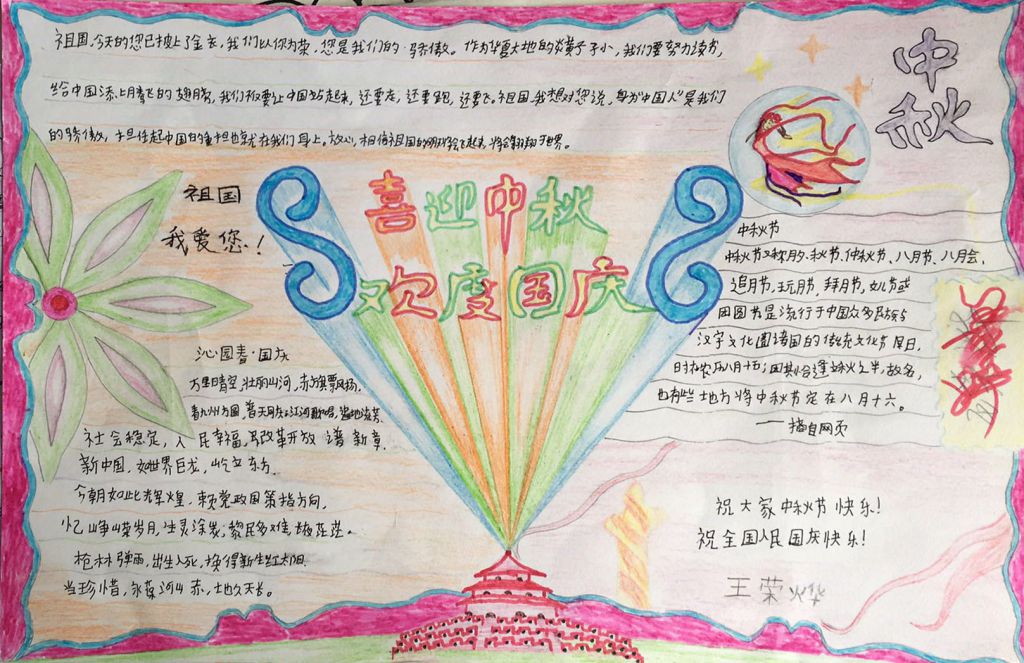 祖国,今天的您已披上了金衣,我们以你为荣,您是我们的骄傲。作为华夏大地的炎黄子小,我们要努力读书,
给中国添上腾飞的翅膀,我们不仅要让中国站起来,还要走,还要跑,还要飞。祖国,我想对您说,身为“中国人”是我们
的骄傲,担任起中国的重担也就在我们身上。放心,相信祖国的明天会飞起来,将会翱翔于世界。
祖国
我爱您!
喜迎中秋
欢度国庆
中秋
中秋节
中秋节又称月夕、秋节、仲秋节、八月节、八月会、
追月节、玩月节、拜月节、女儿节或
团圆节,是流行于中国众多民族与
汉字文化圈诸国的传统文化节日,
时在农历八月十五;因其恰逢三秋之半,故名,
也有些地方将中秋节定在八月十六。
——摘自网页
沁园春·国庆
万里晴空,壮丽山河,赤旗飘扬。
看九州方圆,普天同庆;江河歌唱,
社会稳定,人民幸福,改革开放谱新章。
新中国,如世界巨龙,屹立东方。
今朝如此辉煌,赖党政国策指方向,
忆峥嵘岁月,生灵涂炭;黎民多难,
枪林弹雨,出生入死,换得新生红太阳。
当珍惜,永葆河山赤,地久天长。
祝大家中秋节快乐!
祝全国人民国庆快乐!
王荣烨